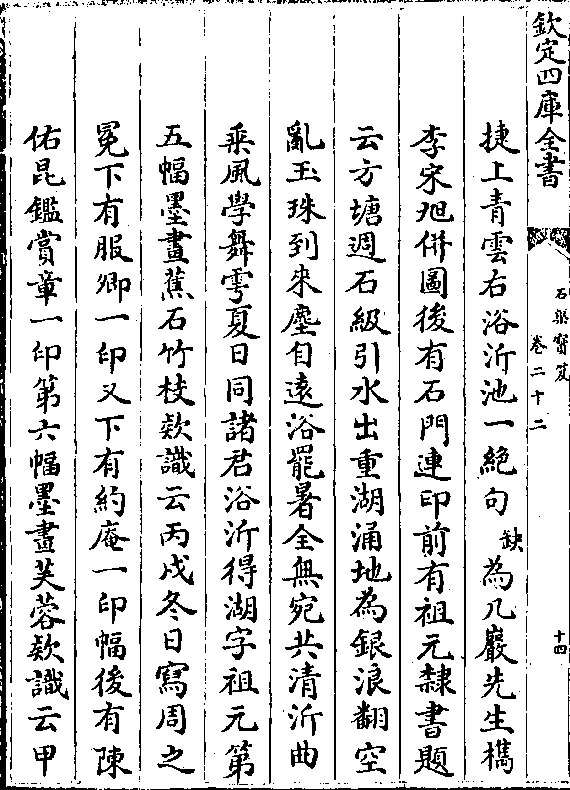 欽定四庫全書
石渠寳笈
卷二十二
十四
捷上青雲右浴沂池一絶句缺為几巖先生檇
李宋旭併圖後有石門連印前有祖元隸書題
云方塘週石級引水出重湖涌地為銀浪翻空
亂玉珠到來塵自遠浴罷暑全無宛共清沂曲
乘風學舞雩夏日同諸君浴沂得湖字祖元第
五幅墨畫蕉石竹枝欵識云丙戌冬日寫周之
冕下有服卿一印又下有約庵一印幅後有陳
佑昆鑑賞章一印第六幅墨畫芙蓉欵識云甲